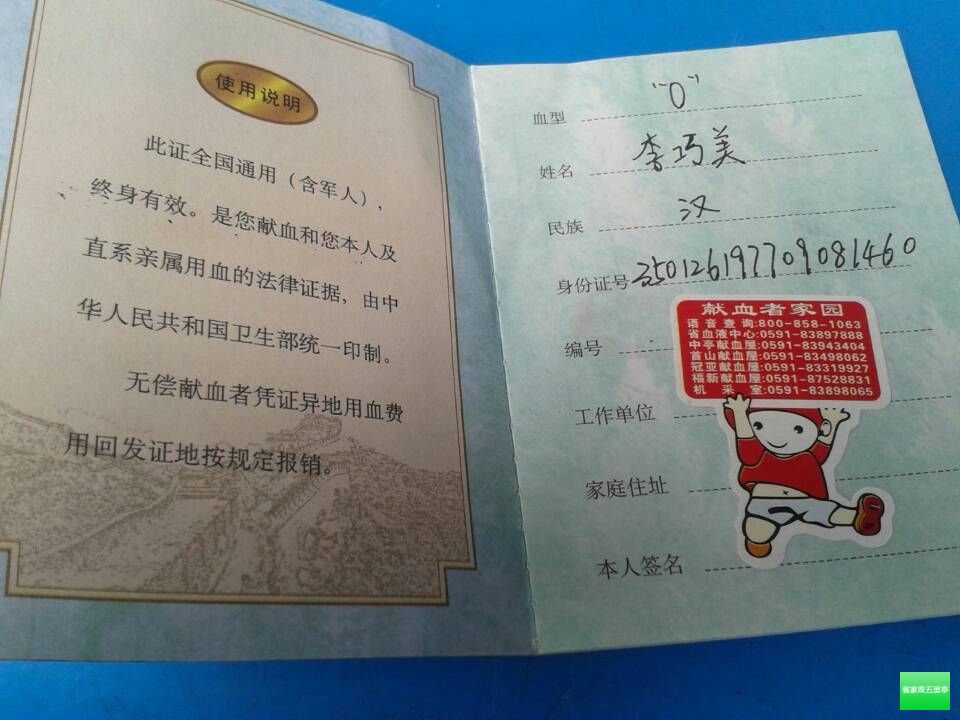 使用说明
此证全国通用（含军人），
终身有效。是您献血和您本人及
直系亲属用血的法律证据，由中
华人民共和国卫生部统一印制。
无偿献血者凭证异地用血费
用回发证地按规定报销。
血型 "O"
姓名 李巧美
民族 汉
身份证号 350126197709081460
编号
工作单位
家庭住址
本人签名
献血者家园
语音查询:800-858-1063
省血液中心:0591-83897888
中亭献血屋:0591-83943404
首山献血屋:0591-83498062
冠亚献血屋:0591-83319927
福新献血屋:0591-87528831
机采室:0591-83898065
省家政五里亭